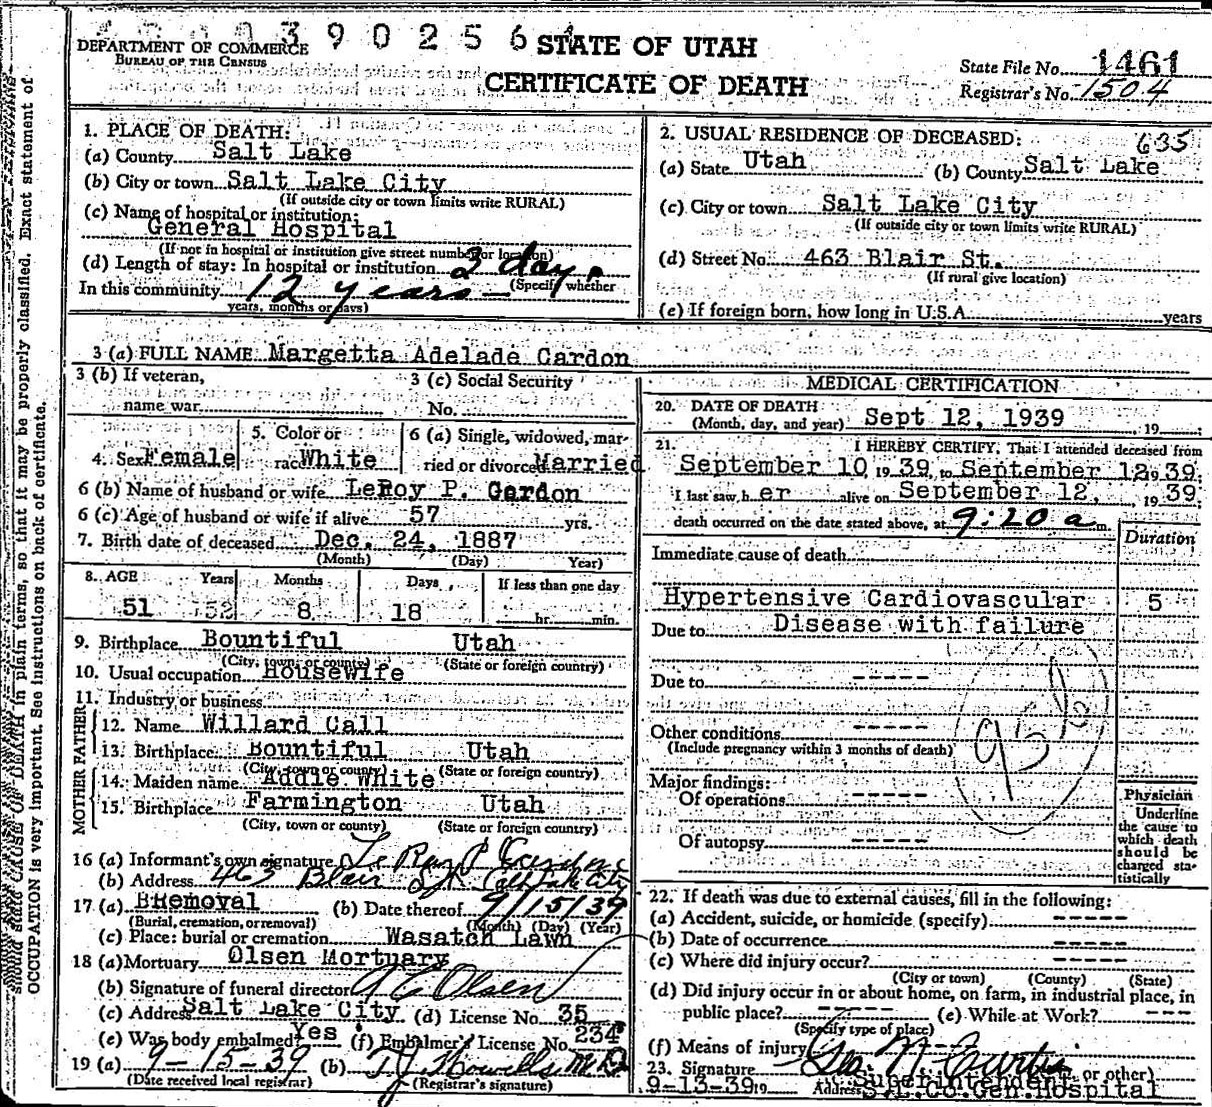 390256
DEPARTMENT OF COMMERCE
BUREAU OF THE CENSUS
STATE OF UTAH
CERTIFICATE OF DEATH
State File No. 1461
Registrar's No. 1504
should state CAUSE OF DEATH in plain terms, so that it may be properly classified. Exact statement of
OCCUPATION is very important. See instructions on back of certificate.
1. PLACE OF DEATH:
(a) County Salt Lake
(b) City or town Salt Lake City
(If outside city or town limits write RURAL)
(c) Name of hospital or institution:
General Hospital
(If not in hospital or institution give street number or location)
(d) Length of stay: In hospital or institution 2 day.
(Specify whether
In this community 12 years
years, months or days)
2. USUAL RESIDENCE OF DECEASED: 635
(a) State Utah (b) County Salt Lake
(c) City or town Salt Lake City
(If outside city or town limits write RURAL)
(d) Street No. 463 Blair St.
(If rural give location)
(e) If foreign born, how long in U.S.A. years
3 (a) FULL NAME Margetta Adelade Cardon
3 (b) If veteran,
name war
3 (c) Social Security
No.
4. Sex Female
5. Color or
race White
6 (a) Single, widowed, mar-
ried or divorced Married
6 (b) Name of husband or wife LeRoy P. Cardon
6 (c) Age of husband or wife if alive 57 yrs.
7. Birth date of deceased Dec. 24, 1887
(Month) (Day) Year)
8. AGE Years Months Days If less than one day
51 52 8 18 hr. min.
9. Birthplace Bountiful Utah
(City, town or county) (State or foreign country)
10. Usual occupation Housewife
11. Industry or business
FATHER
12. Name Willard Call
13. Birthplace Bountiful Utah
(City, town or county) (State or foreign country)
MOTHER
14. Maiden name Addie White
15. Birthplace Farmington Utah
(City, town or county) (State or foreign country)
16 (a) Informant's own signature
(b) Address 463 Blair St.
17 (a) BRemoval (b) Date thereof 9/15/39
(Burial, cremation, or removal) (Month) (Day) (Year)
(c) Place: burial or cremation Wasatch Lawn
18 (a) Mortuary Olsen Mortuary
(b) Signature of funeral director Olsen
(c) Address Salt Lake City (d) License No. 35
(e) Was body embalmed Yes (f) Embalmer's License No. 234
19 (a) 9-15-39 (b) M.D.
(Date received local registrar) (Registrar's signature)
MEDICAL CERTIFICATION
20. DATE OF DEATH
(Month, day, and year) Sept 12, 1939 , 19
21. I HEREBY CERTIFY, That I attended deceased from
September 10, 19 39, to September 12 19 39.
I last saw h er alive on September 12, 19 39.
death occurred on the date stated above, at 9:20 a m.
Duration
Immediate cause of death
Hypertensive Cardiovascular 5
Due to Disease with failure
Due to -----
Other conditions -----
(Include pregnancy within 3 months of death)
Major findings:
Of operations -----
Of autopsy -----
Physician
Underline
the cause to
which death
should be
charged sta-
tistically
22. If death was due to external causes, fill in the following:
(a) Accident, suicide, or homicide (specify) -----
(b) Date of occurrence -----
(c) Where did injury occur? -----
(City or town) (County) (State)
(d) Did injury occur in or about home, on farm, in industrial place, in
public place? ----- (e) While at Work? ---
(Specify type of place)
(f) Means of injury
23. Signature Geo. M. Curtis or other)
Superintendent
9-13-39 19 Address S.L.Co.Gen.Hospital